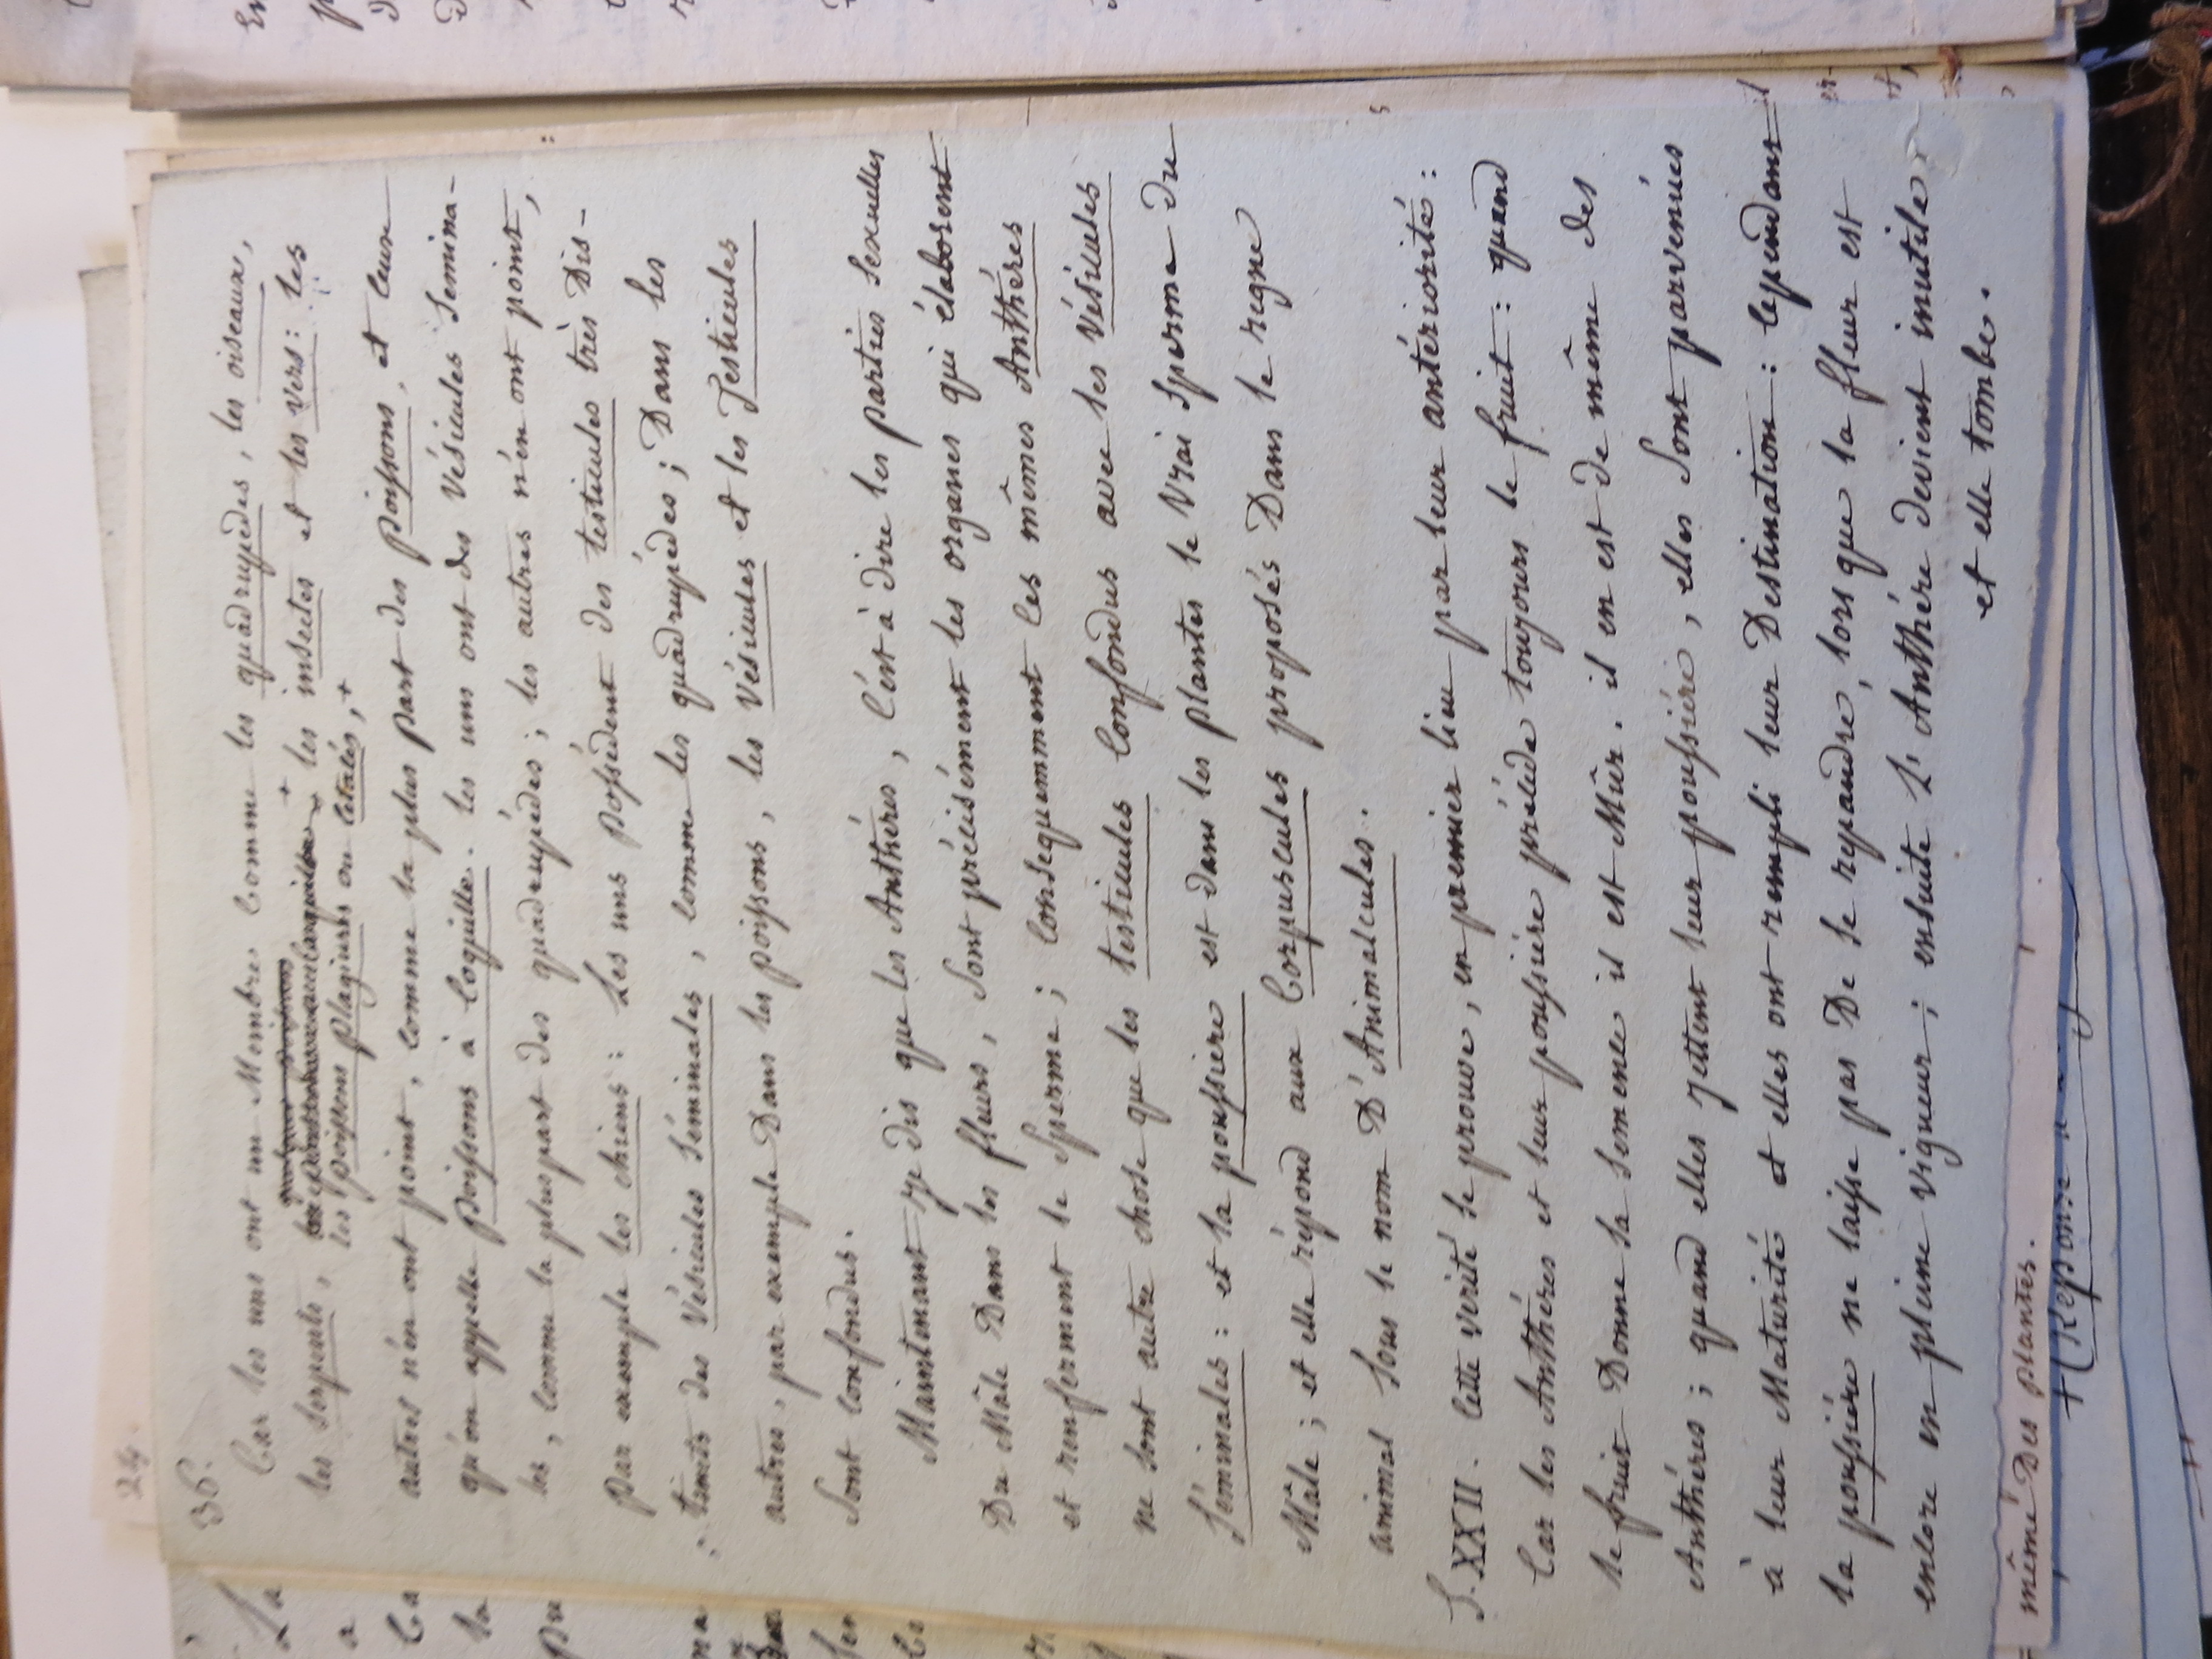 36.
Car les uns ont un Membre Comme les quadrupedes, les oiseaux,
les serpents, les insectes et les vers: les
les poissons plagiures ou Cetacés, +
autres n'en ont point, comme la plus part des poissons, et ceux
qu'on appelle poissons à Coquille. les uns ont des Vésicules Semina-
les, comme la pluspart des quadrupédes; les autres n'en ont point,
par exemple les chiens: Les uns possédent des testicules très Dis-
:tincts des Vésicules Séminales, comme les quadrupédes; Dans les
autres, par exemple Dans les poissons, les Vésicules et les Testicules
Sont Confondus.
Maintenant je dis que les Anthéres, C'est à dire les parties Sexuelles
Du Mâle Dans les fleurs, Sont précisément les organes qui élaborent
et renferment le Sperme; Consequemment les mêmes Anthéres
ne sont autre chose que les testicules Confondus avec les Vésicules
Séminales: et la poussiere est dans les plantes le Vrai Sperme du
Mâle; et elle répond aux Corpuscules proposés Dans le regne
animal Sous le nom D'Animalcules..
§. XXII. Cette verité se prouve, en premier lieu par leur antériorité:
Car les Anthéres et leur poussiére précéde toujours le fruit: quand
le fruit Donne sa Semence il est Mûr. il en est de même des
Anthéres; quand elles jettent leur poussiére, elles Sont parvenües
à leur Maturité et elles ont rempli leur Destination: Cependant il
la poussiére ne laisse pas De se repandre, lors que la fleur est
encore en pleine vigueur; ensuite L'Anthére devient inutile,
et elle tombe.
même Des plantes.
+(Reponse
24.